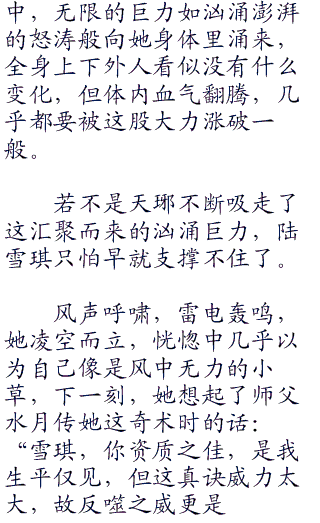 中，无限的巨力如汹涌澎湃
的怒涛般向她身体里涌来，
全身上下外人看似没有什么
变化，但体内血气翻腾，几
乎都要被这股大力涨破一
般。
若不是天琊不断吸走了
这汇聚而来的汹涌巨力，陆
雪琪只怕早就支撑不住了。
风声呼啸，雷电轰鸣，
她凌空而立，恍惚中几乎以
为自己像是风中无力的小
草，下一刻，她想起了师父
水月传她这奇术时的话：
“雪琪，你资质之佳，是我
生平仅见，但这真诀威力太
大，故反噬之威更是